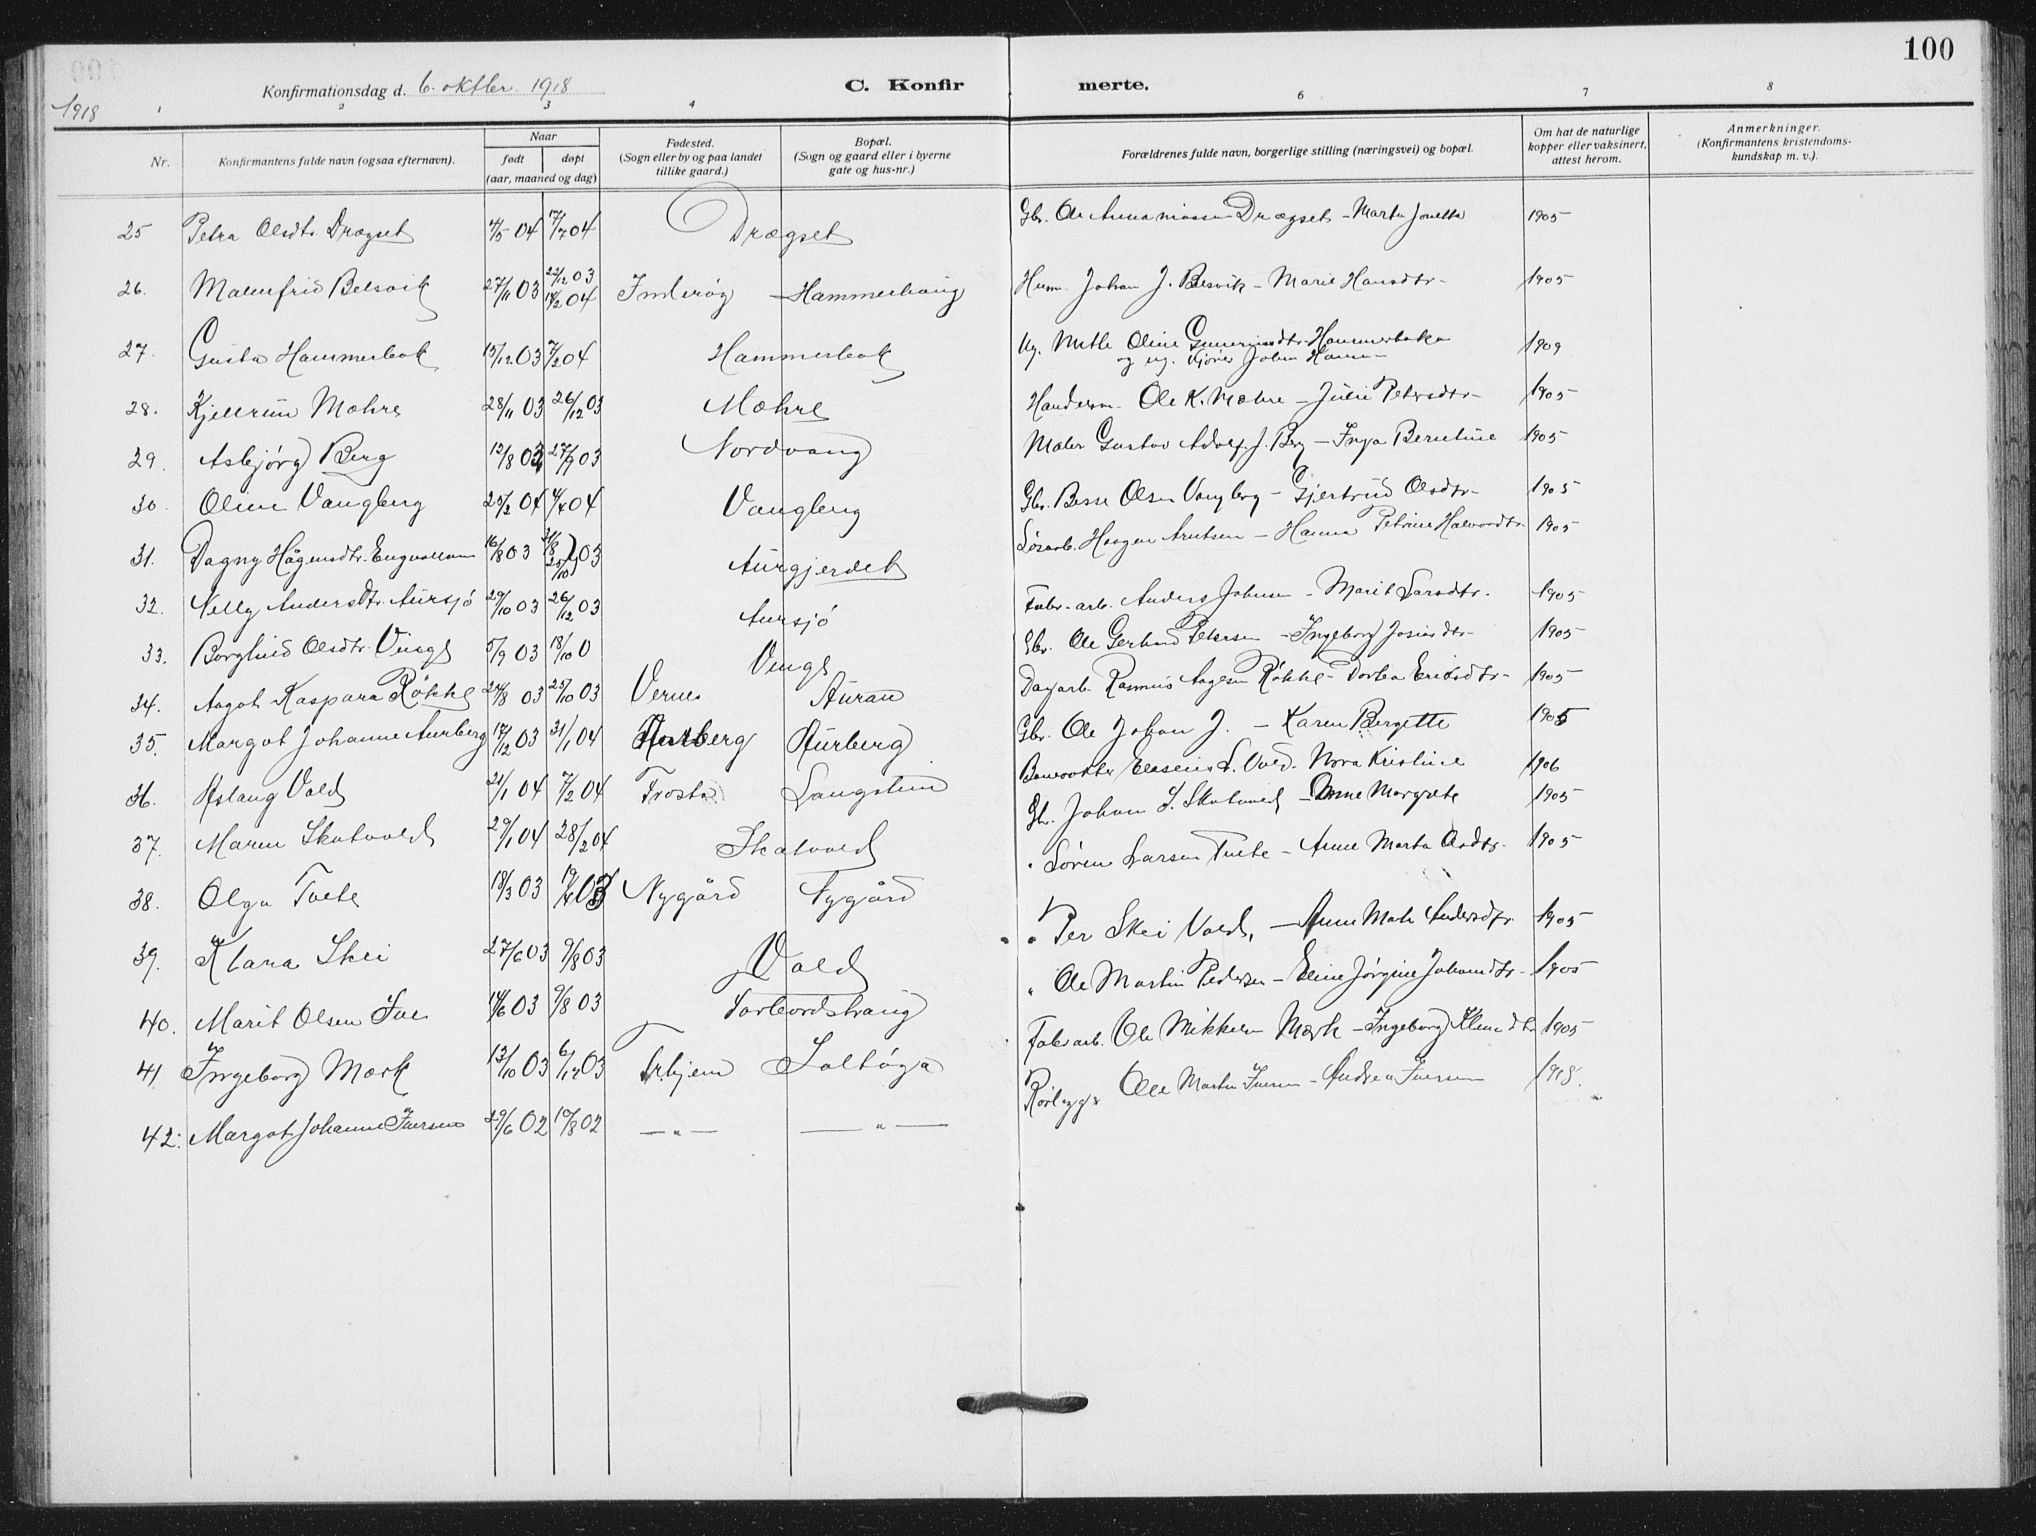 100
Konfirmationsdag d. 6. oktber. 1918
C. Konfir merte.
1918
1 2 3 4 6 7 8
Nr.
Konfirmantens fulde navn (ogsaa efternavn).
Naar
født døpt
(aar, maaned og dag)
Fødested.
(Sogn eller by og paa landet
tillike gaard.)
Bopæl.
(Sogn og gaard eller i byerne
gate og hus-nr.)
Forældrenes fulde navn, borgerlige stilling (næringsvei) og bopæl.
Om hat de naturlige
kopper eller vaksinert,
attest herom.
Anmerkninger.
(Konfirmantens kristendoms-
kundskap m. v.).
25 Petra Olsdtr. Drægset 04 17/7 04 Drægset Gbr. Ole Drægset - Marta Jonetta 1905
26. Malmfrid Belsvik 27/11 03 22/12 03 14/2 04 Inderøy Hammerhaug Husm. Johan J. Belsvik - Marie Hansdtr - 1905
27. Gusta Hammerbak 15/12 03 7/2 04 Hammerbak Ug. Mette Oline Hammerbakn
og ug. Johan 1909
28. Kjellrun Mæhre 28/11 03 26/12 03 Mæhre Handelsm. Ole K. Mæhre - Julie Petersdtr - 1905
29. Asbjørg Berg 12/8 03 27/9 03 Nordvang Maler Gustav Adolf J. Berg - Inga Berntine 1905
30. Oline Vangberg 25/2 04 4/4 04 Vangberg Gbr. Besse Olsen Vangberg - Gjertrud Olsdtr - 1905
31. Dagny Hågensdtr. 16/8 03 03 Aurgjerdet Løsarb. Haagen Arntsen - Hanna Petrine Halvordtr 1905
32. Nelly Andersdtr. Aursjø 29/10 03 26/12 03 Aursjø Fabr. arb. Anders Johnsen - Marit Larsdtr. 1905
33. Borghild Olsdtr. Vinge 5/9 03 18/10 0 Vinge Gbr. Ole Gerhard Petersen - Ingeborg 1905
34. Aagot Kaspara Røkke 24/8 03 25/10 03 Vernes Auran Dagarb. Rasmus Aagesen Røkke - Dortea Eriksdtr - 1905
35. Margot Johanne Aurberg 17/12 03 31/1 04 Aurberg Aurberg Gbr. Ole Johan J. - Karen Bergette 1905
36. Aslaug Vold 21/1 04 7/2 04 Frosta Langstein Banevokter Vold. Nora Kristine 1906
37. Maren Skatvold 29/1 04 28/2 04 Skatvold Gbr. Johan Skatvold - Anne Margrete 1905
38. Olga Tvete 18/3 03 03 Nygård Nygård " Søren Larsen Tvete - Anne Marta 1905
39. Klara Skei 27/6 03 9/8 03 Vold " Per Skei Vold, - Anne Mate Andersdtr. 1905
40. Marit Olsen 14/6 03 9/8 03 " Ole Martin Pedersen - Eline Jørgine Johansdtr - 1905
41 Ingeborg Mærk 13/10 03 6/12 03 Trhjem Saltøya Fabr arb. Ole Mikkelsen Mærk - Ingeborg 1905
42. Margot Johanne Iversen 29/6 02 10/8 02 — " — — " — Rørlegger Ole Martin Iversen - Andrea Iversen 1918.